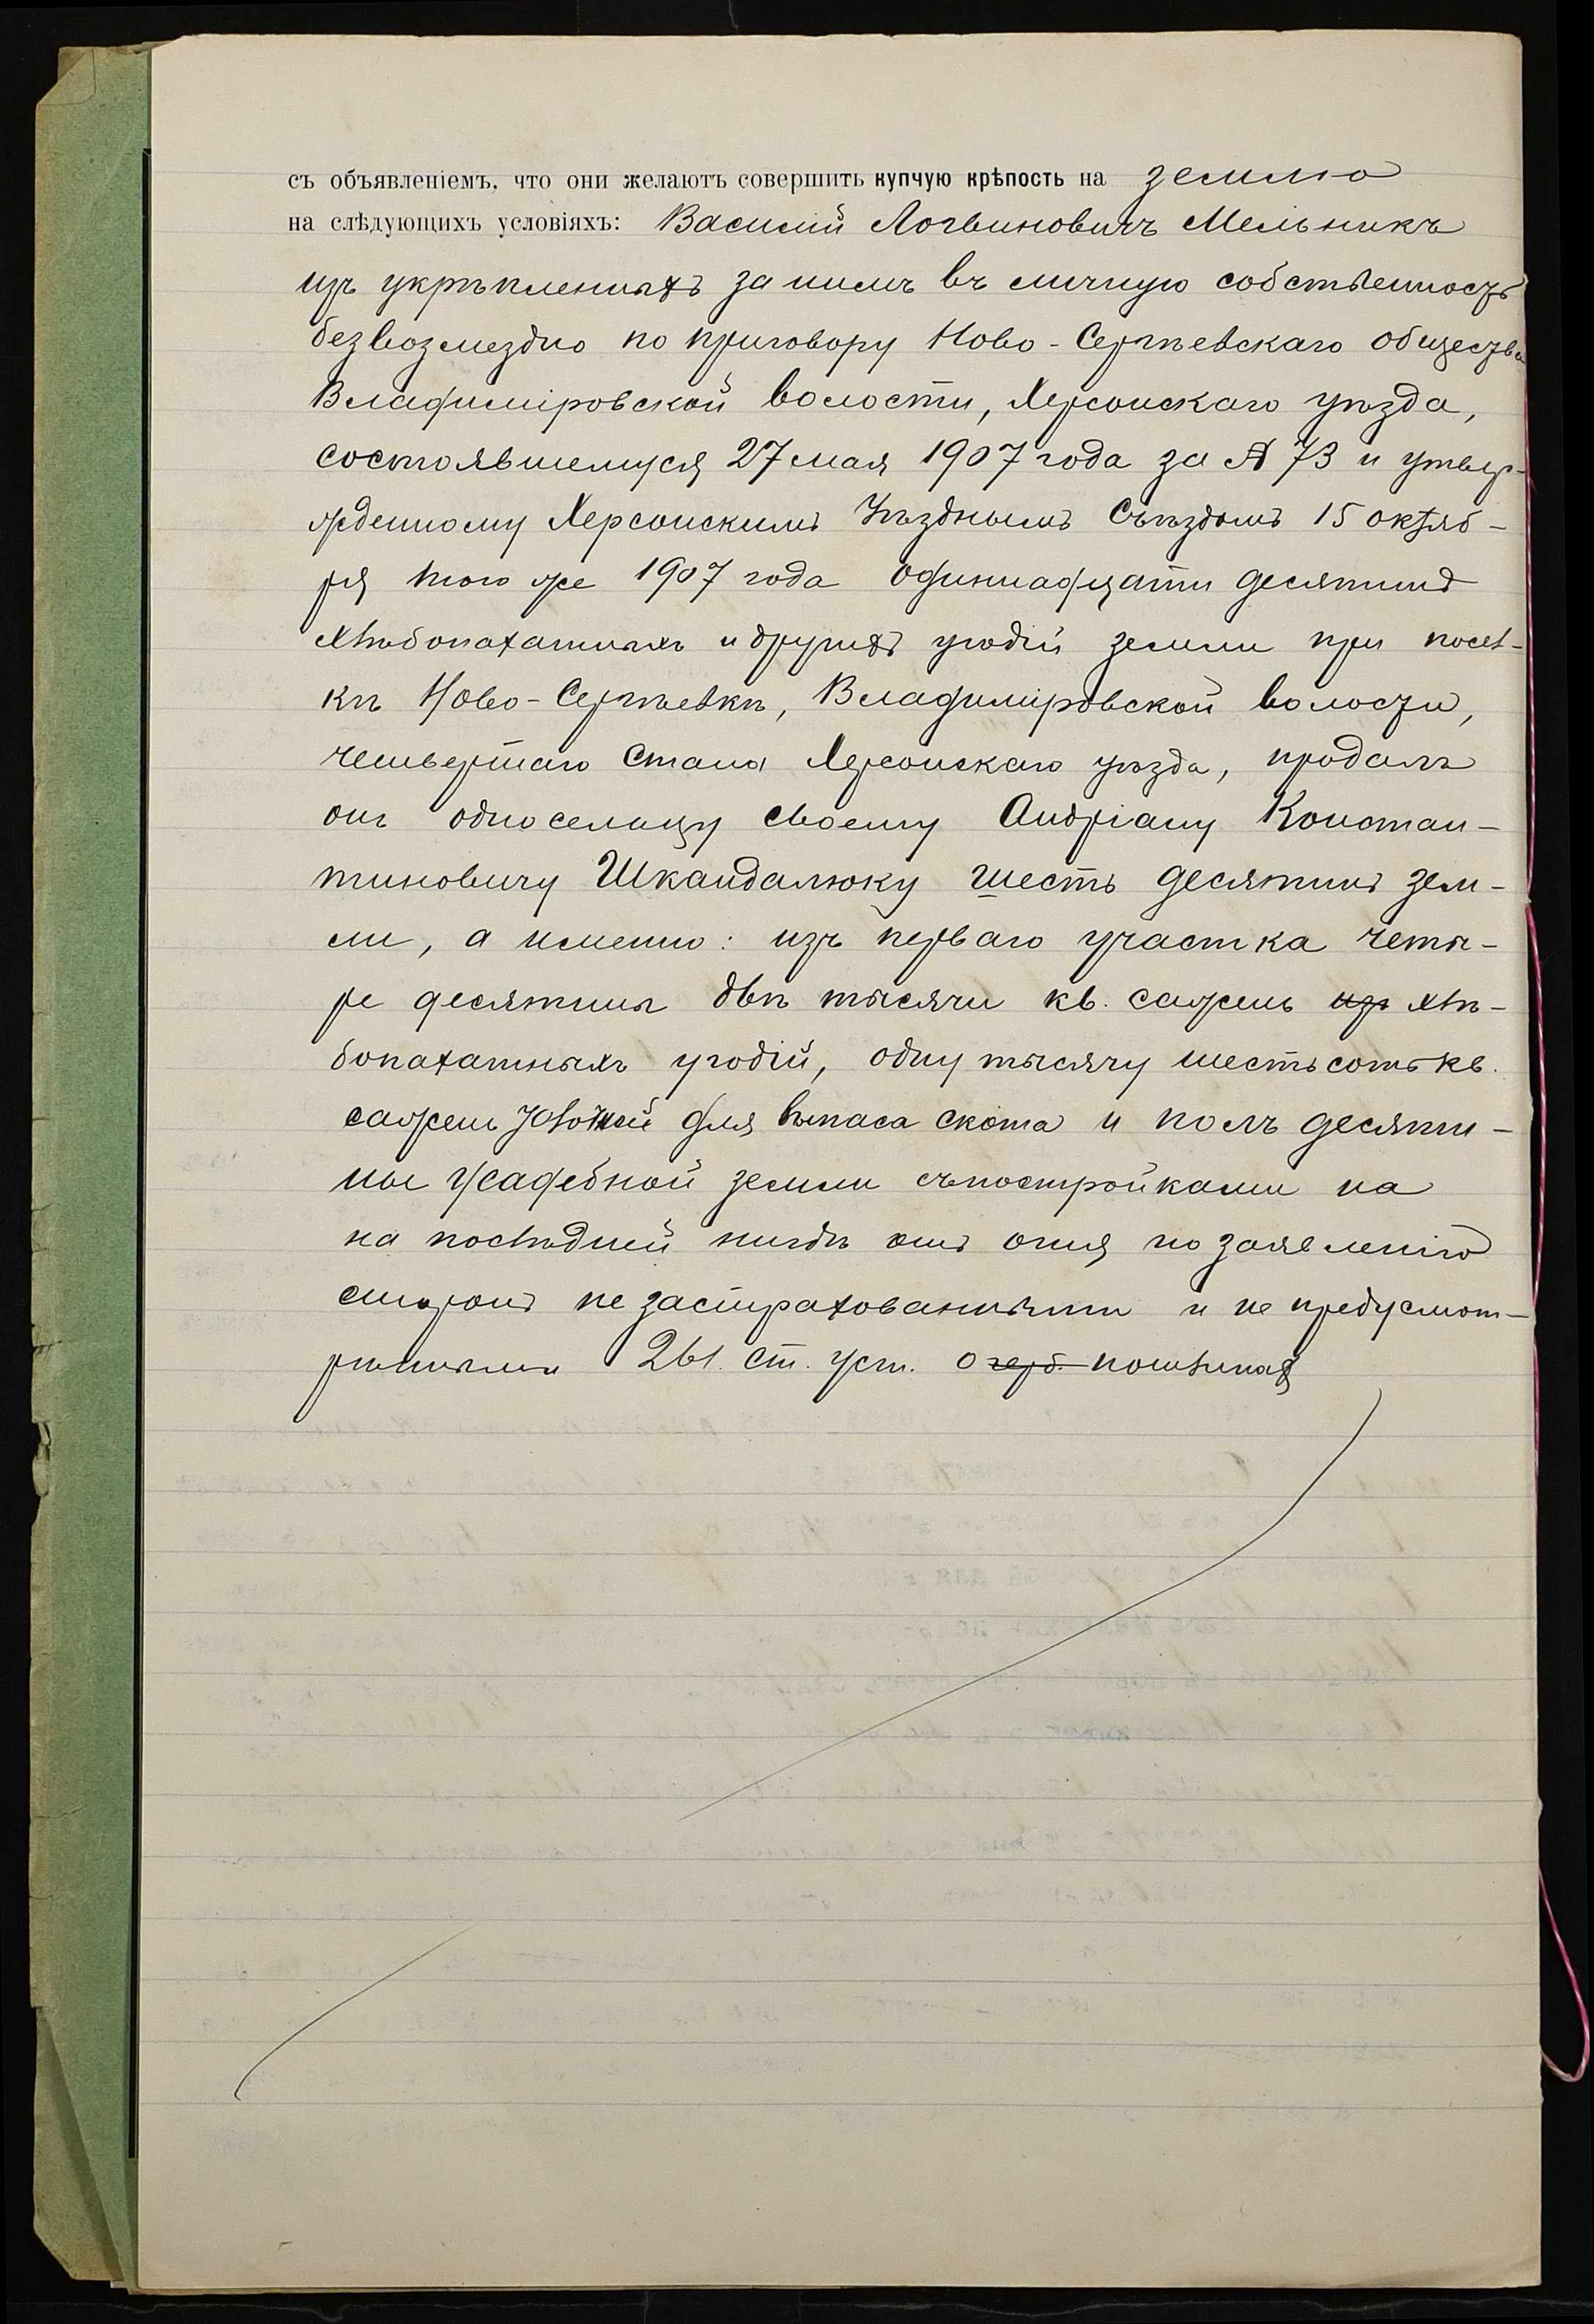 съ объявленіемъ, что они желаютъ совершить купчую крѣпость на землю
на слѣдующихъ условіяхъ: Василій Логвиновичъ Мельникъ
изъ укрѣпленныхъ за нимъ въ личную собственность
безвозмездно по приговору Ново-Сергѣевскаго общества
Владиміровской волости, Херсонскаго уѣзда,
состоявшемуся 27 мая 1907 года за № 73 и утвер-
жденному Херсонскимъ Уѣзднымъ Съѣздомъ 15 октяб-
ря того же 1907 года одиннадцати десятинъ
хлѣбопахатныхъ и другихъ угодій земли при посел-
кѣ Ново-Сергѣевкѣ, Владиміровской волости,
четвертаго стана Херсонскаго уѣзда, продалъ
онъ односельцу своему Андріану Констан-
тиновичу Шкандалюку шесть десятинъ зем-
ли, а именно: изъ перваго участка четы-
ре десятины двѣ тысячи кв. сажень изъ хлѣ-
бопахатныхъ угодій, одну тысячу шестьсотъ кв.
сажень для выпаса скота и полъ десяти-
ны усадебной земли съ постройками на
на послѣдней нигдѣ отъ огня по заявленію
сторонъ не застрахованными и не предусмот-
рѣнными 261. ст. уст. о герб. пошлинахъ